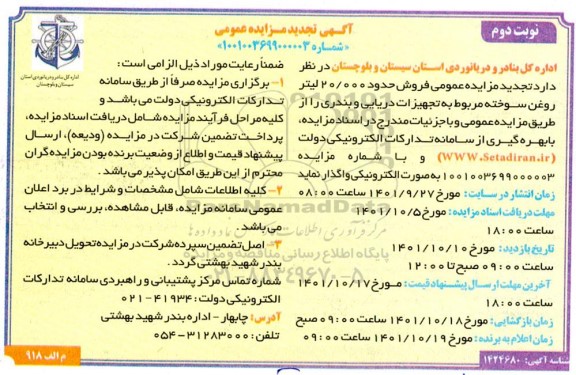 نوبت دوم
آگهی تجدید مزایده عمومی
«شماره ۱۰۰۱۰۰۳۶۹۹۰۰۰۰۰۳»
اداره کل بنادر و دریانوردی استان سیستان و بلوچستان
اداره کل بنادر و دریانوردی استان سیستان و بلوچستان در نظر
دارد تجدید مزایده عمومی فروش حدود ۲۰/۰۰۰ لیتر
روغن سوخته مربوط به تجهیزات دریایی و بندری را از
طریق مزایده عمومی و با جزئیات مندرج در اسناد مزایده،
با بهره گیری از سامانه تدارکات الکترونیکی دولت
(WWW.Setadiran.ir) و با شماره مزایده
۱۰۰۱۰۰۳۶۹۹۰۰۰۰۰۳ به صورت الکترونیکی واگذار نماید
زمان انتشار در سایت: مورخ ۱۴۰۱/۹/۲۷ ساعت ۰۸:۰۰
مهلت دریافت اسناد مزایده: مورخ ۱۴۰۱/۱۰/۵
ساعت ۱۸:۰۰
تاریخ بازدید: مورخ ۱۴۰۱/۱۰/۱۰
ساعت ۰۹:۰۰ صبح تا ۱۲:۰۰
آخرین مهلت ارسال پیشنهاد قیمت: مورخ ۱۴۰۱/۱۰/۱۷
ساعت ۱۸:۰۰
زمان بازگشایی: مورخ ۱۴۰۱/۱۰/۱۸ ساعت ۰۹:۰۰ صبح
زمان اعلام به برنده: مورخ ۱۴۰۱/۱۰/۱۹ ساعت ۰۹:۰۰
شناسه آگهی: ۱۴۲۴۶۸۰
ضمناً رعایت موراد ذیل الزامی است:
۱- برگزاری مزایده صرفاً از طریق سامانه
تدارکات الکترونیکی دولت می باشد و
کلیه مراحل فرآیند مزایده شامل دریافت اسناد مزایده،
پرداخت تضمین شرکت در مزایده (ودیعه)، ارسال
پیشنهاد قیمت و اطلاع از وضعیت برنده بودن مزایده گران
محترم از این طریق امکان پذیر می باشد.
۲- کلیه اطلاعات شامل مشخصات و شرایط در برد اعلان
عمومی سامانه مزایده، قابل مشاهده، بررسی و انتخاب
می باشد.
۳- اصل تضمین سپرده شرکت در مزایده تحویل دبیرخانه
بندر شهید بهشتی گردد.
شماره تماس مرکز پشتیبانی و راهبردی سامانه تدارکات
الکترونیکی دولت: ۴۱۹۳۴-۰۲۱
آدرس: چابهار - اداره بندر شهید بهشتی
تلفن: ۳۱۲۸۳۰۰۰-۰۵۴
م الف ۹۱۸
ParsNamadData
پایگاه اطلاع رسانی مناقصه و مزایده